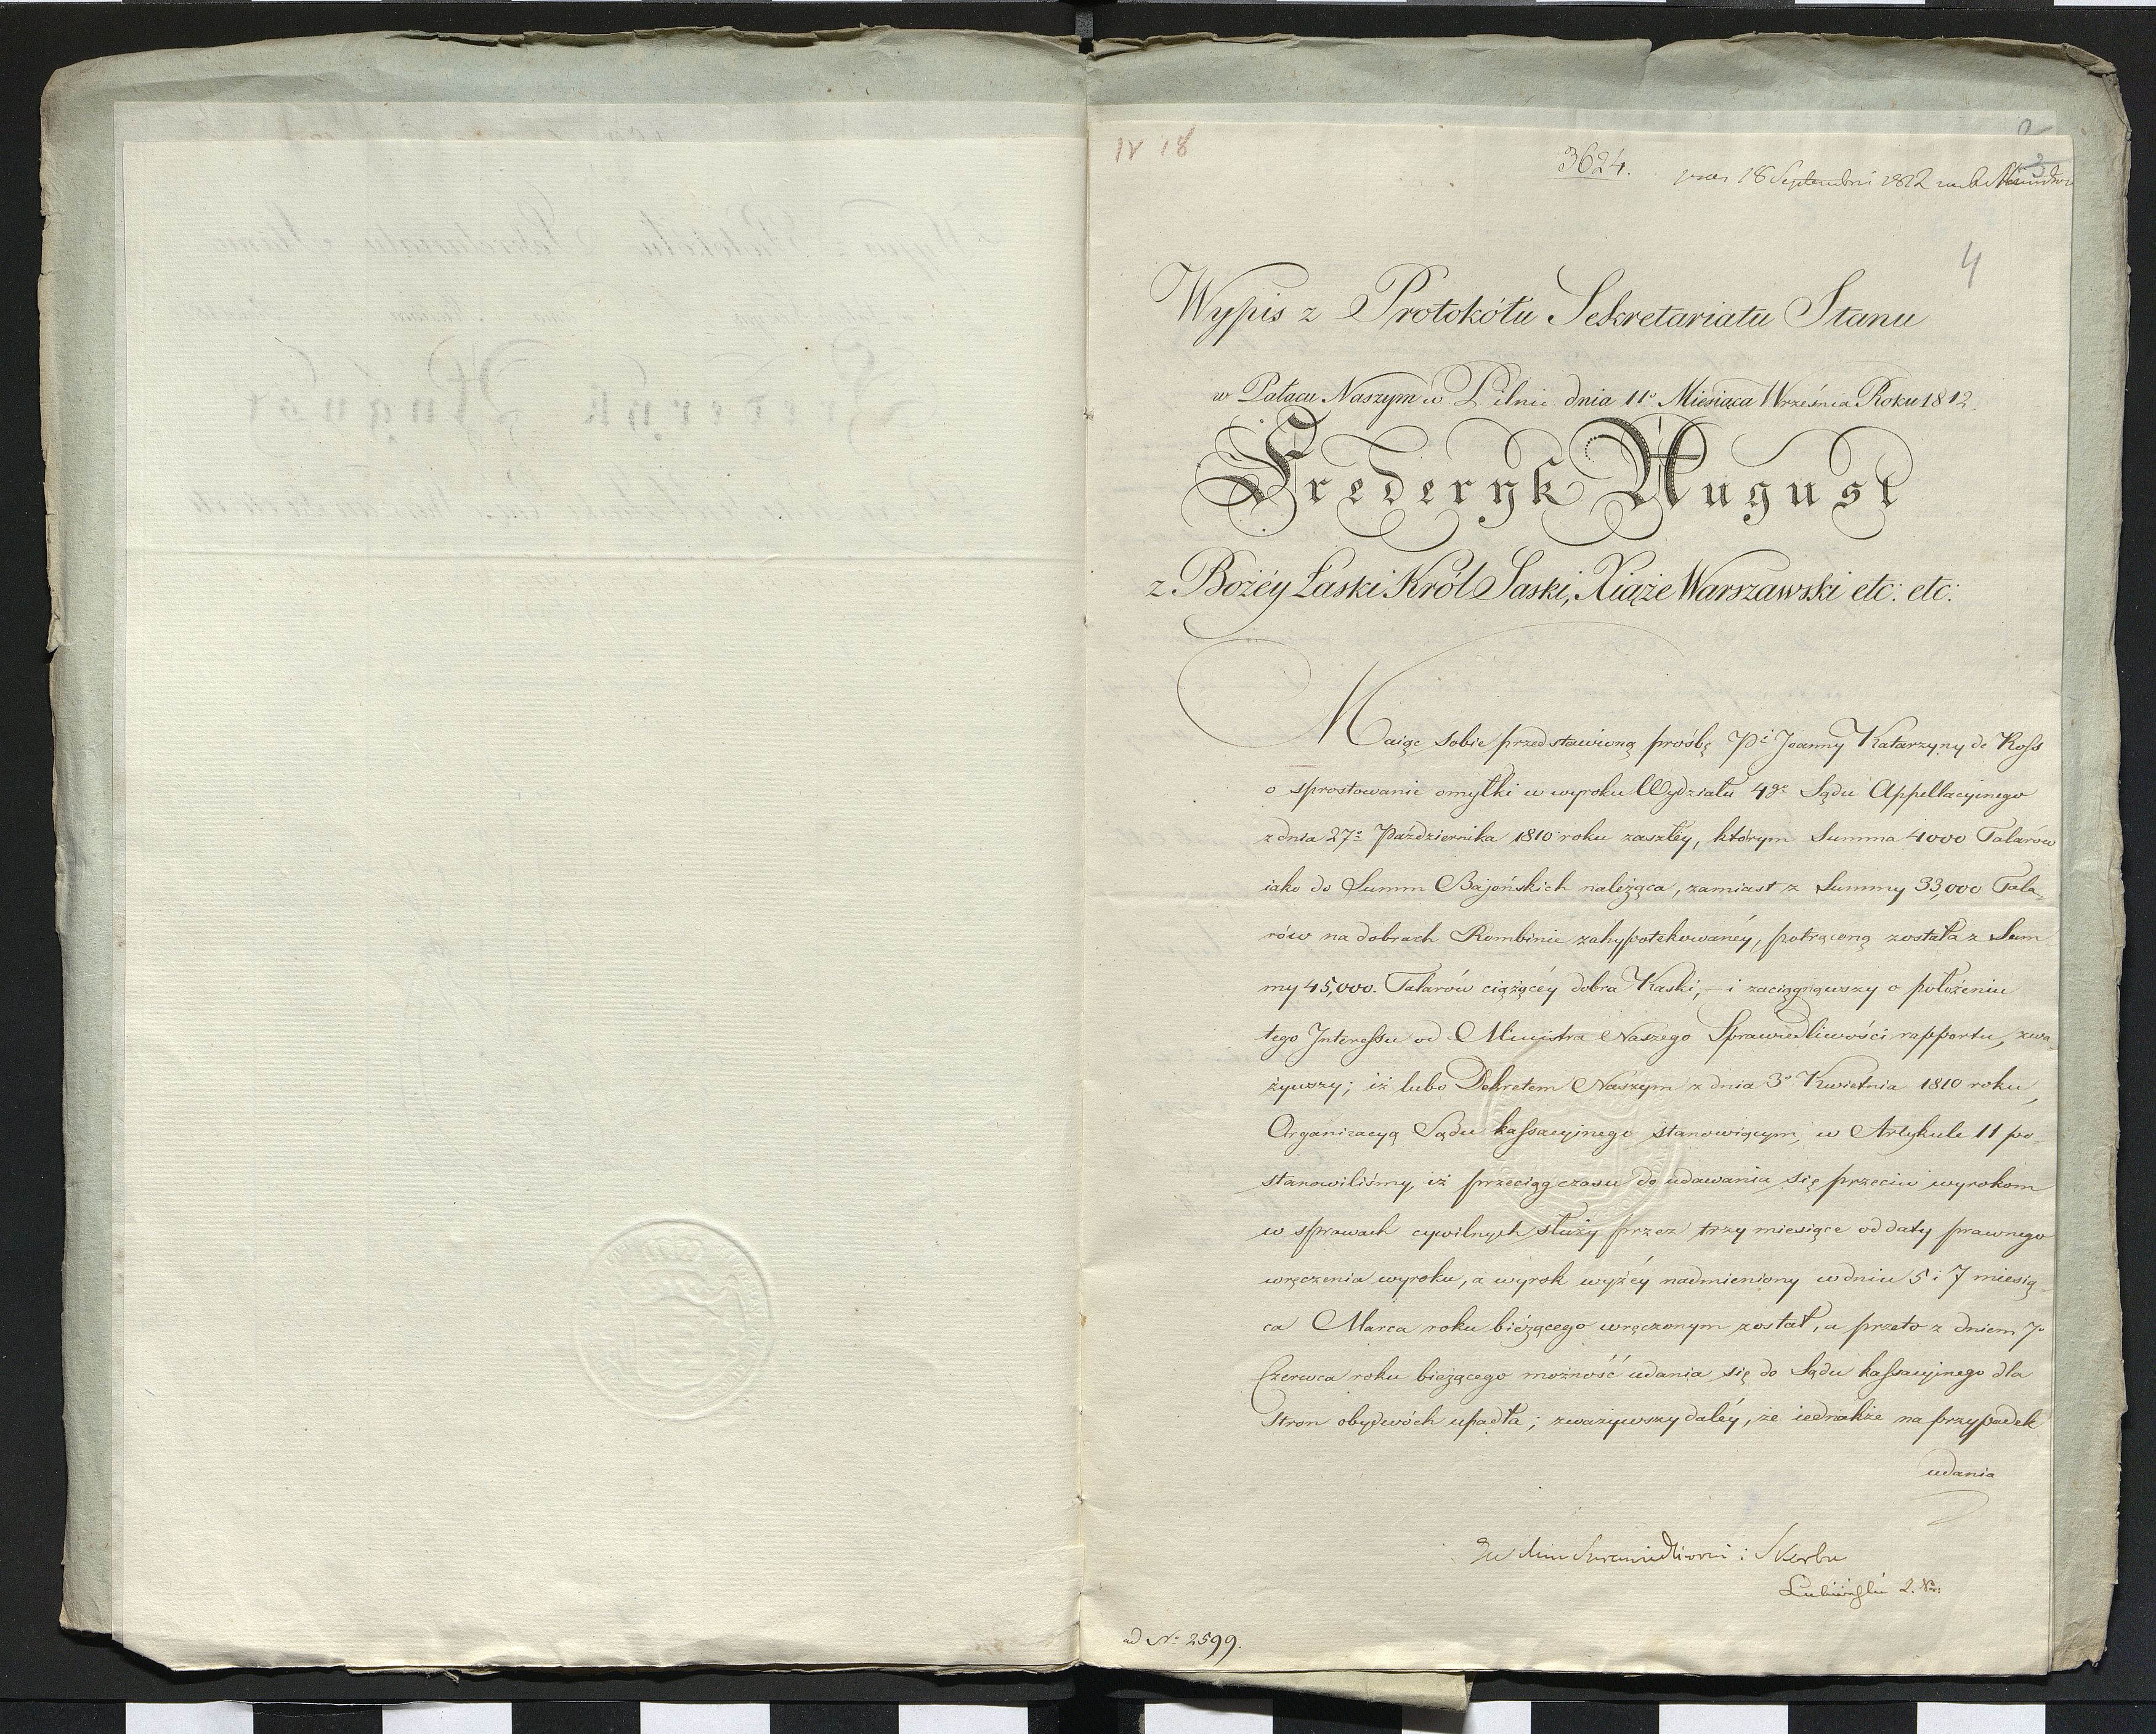 IV 18
2
3624.
3
praes 18 Septembris 1812
4
Wypis z Protokółu Sekretariatu Stanu
w Pałacu Naszym w Pilnic dnia 11º Miesiąca Września Roku 1812.
Frederyk August
z Bożéy Łaski Król Saski, Xiąże Warszawski etc: etc:
Maiąc sobie przedstawioną prośbę Pⁱ Joanny Katarzyny de Ross
o sprostowanie omyłki w wyroku Wydziału 4go Sądu Appellacyinego
z dnia 27º Października 1810 roku zaszłéy, którym Summa 4000 Talarów
iako do Summ Bajońskich należąca, zamiast z Summy 33,000 Tala-
rów na dobrach Rombinie zahypotekowanéy, potrąconą została z Sum-
my 45,000. Talarów ciążącéy dobra Kaski, – i zaciągnąwszy o położeniu
tego Interessu od Ministra Naszego Sprawiedliwości rapportu, zwa-
żywszy; iż lubo Dekretem Naszym z dnia 3º Kwietnia 1810 roku,
Organizacyą Sądu kassacyinego stanowiącym, w Artykule 11 po-
stanowiliśmy, iż przeciąg czasu do udawania się przeciw wyrokom
w sprawach cywilnych służy przez trzy miesiące od daty prawnego
wręczenia wyroku, a wyrok wyżéy nadmieniony w dniu 5 i 7 miesią-
ca Marca roku bieżącego wręczonym został, a przeto z dniem 7º
Czerwca roku bieżącego możność udania się do Sądu kassacyinego dla
Stron obydwóch upadła; zważywszy daléy, że iednakże na przypadek
udania
Do Min Sprawiedliwości i Skarbu
ad Nº 2599.